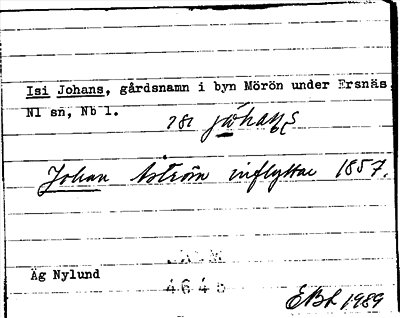 Isi Johans, gårdsnamn i byn Mörön under Ersnäs,
Nl sn, Nb l.
Johan Åström inflyttar 1857.
Åg Nylund
4646
EBL 1989